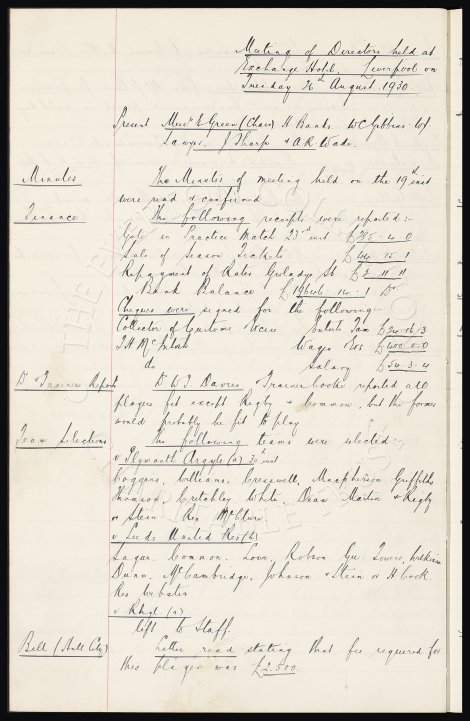 Meeting of Directors held at
Exchange Hotel, Liverpool on
Tuesday 26th August 1930
Present Messrs E Green (Chair) H Banks. W C Gibbins. W J
Sawyer. J Sharp & A R Wade.
Minutes The Minutes of meeting held on the 19th inst
were read & confirmed
Finance The following receipts were reported:-
Gate in Practice Match 23rd inst
Sale of Season Tickets
Repayment of Rates Goodison St
Bank Balance
Cheques were signed for the following:-
Collector of Customs Excise Entertt Tax
T H McIntosh Wages Etc £400.0.0
do Salary £54.3.4
Dr & Trainers Report Dr W J Davies & Trainer Cooke reported all
players fit except Rigby & Common, but the former
would probably be fit to play
Team Selections The following teams were selected:-
v Plymouth Argyle (a) 30th inst
Coggins, Williams, Cresswell, Macpherson Griffiths
Thomson, Critchley White, Dean Martin & Rigby
or Stein Res McClure
v Leeds United Res (h)
Sagar, Common. Lowe, Robson Gee.
Dunn, McCambridge, Johnson & Stein or H Cook
Res Webster
v Rhyl. (a)
left to Staff.
Bell (Hull City) Letter read stating that fee required for
this player was £2,500.